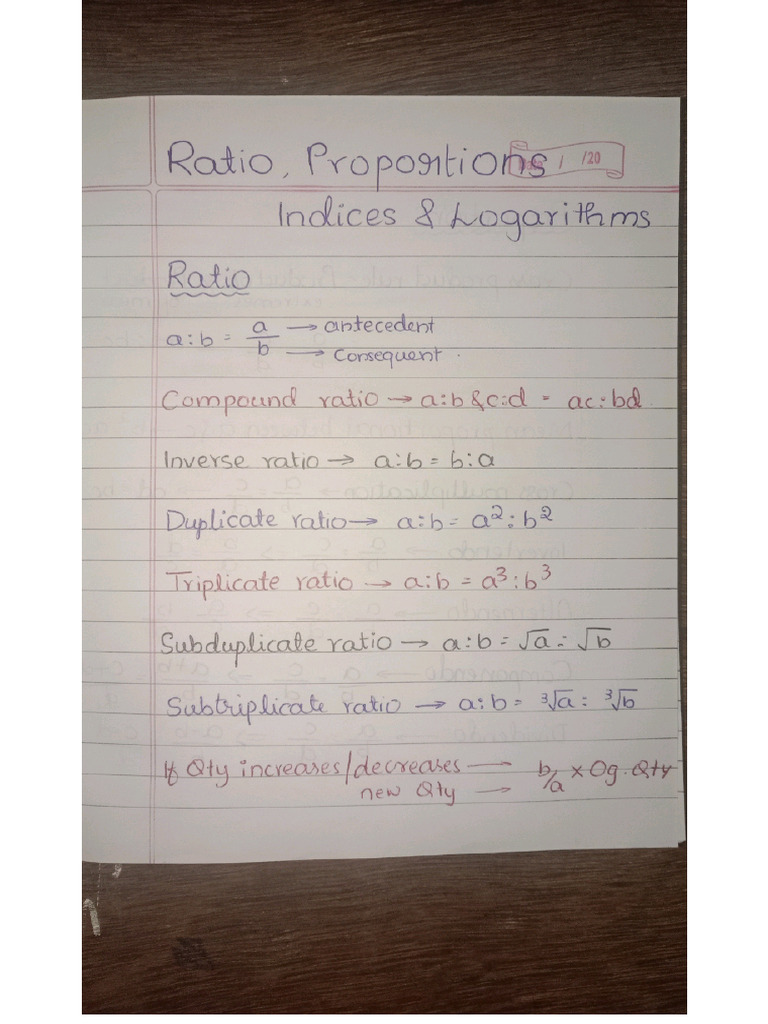 Ratio, Proportions
/ /20
Indices & Logarithms
Ratio
a:b = a/b → antecedent
→ Consequent.
Compound ratio → a:b & c:d = ac:bd.
Inverse ratio → a:b = b:a
Duplicate ratio → a:b = a²:b²
Triplicate ratio → a:b = a³:b³
Subduplicate ratio → a:b = √a : √b
Subtriplicate ratio → a:b = ³√a : ³√b
If Qty increases/decreases → b/a × Og. Qty
new Qty →